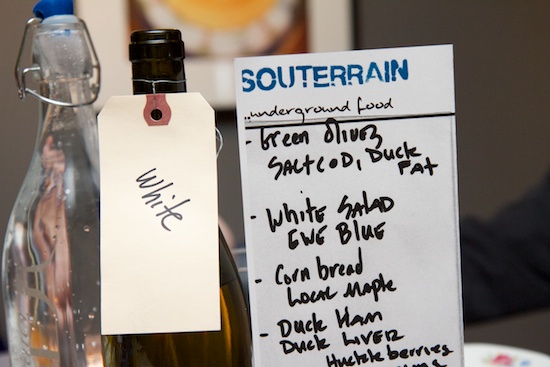 White
SOUTERRAIN
...underground food
- Green Olives
SALT COD, Duck
Fat
- White SALAD
EWE BLUE
- Corn bread
Local Maple
- Duck Ham
Duck LIVER
Huckleberries